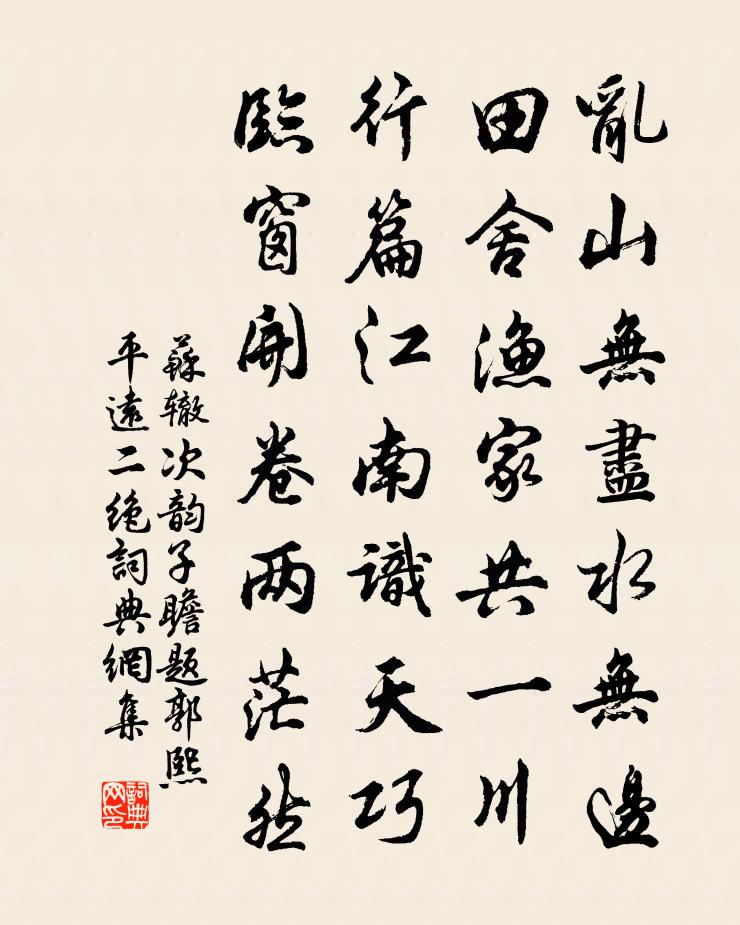 亂山無盡水無邊
田舍漁家共一川
行篇江南識天巧
臨窗開卷两茫然
蘇辙次韵子瞻题郭熙
平遠二絶詞典網集
詞典网印